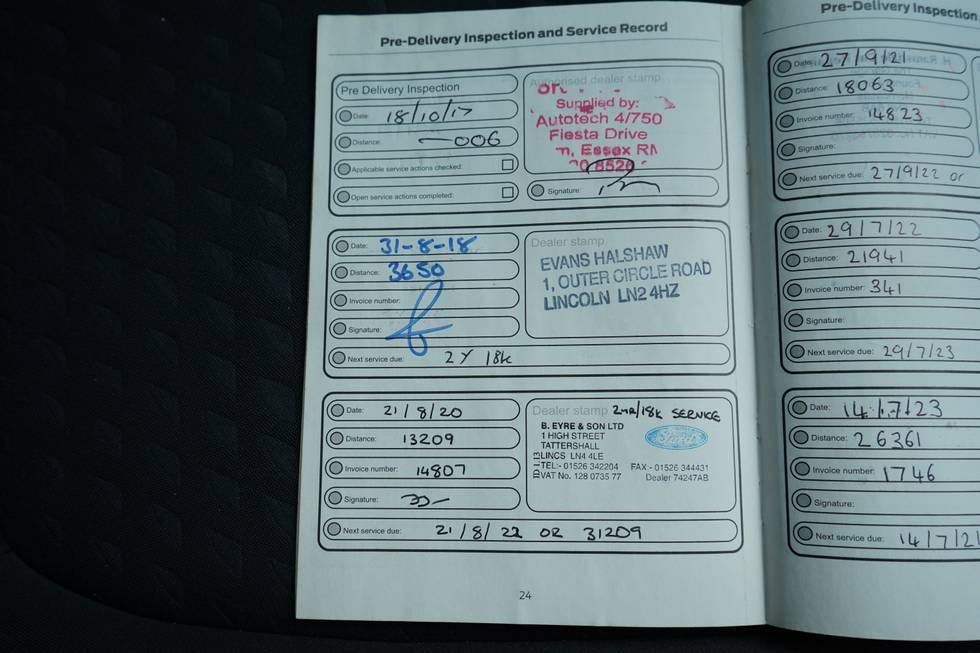 Pre-Delivery Inspection and Service Record
Pre Delivery Inspection
Date: 18/10/17
Distance: —006
Applicable service actions checked:
Open service actions completed:
Authorised dealer stamp
Supplied by:
Autotech 4/750
Fiesta Drive
Essex
8520
Signature:
Date: 31-8-18
Distance: 3650
Invoice number:
Signature:
Next service due: 2Y 18k
Dealer stamp
EVANS HALSHAW
1, OUTER CIRCLE ROAD
LINCOLN LN2 4HZ
Date: 21/8/20
Distance: 13209
Invoice number: 14807
Signature:
Next service due: 21/8/22 OR 31209
Dealer stamp 2YR/18K SERVICE
B. EYRE & SON LTD
1 HIGH STREET
TATTERSHALL
LINCS LN4 4LE
TEL:- 01526 342204 FAX:- 01526 344431
VAT No. 128 0735 77 Dealer 74247AB
Ford
24
Pre-Delivery Inspection
Date: 27/9/21
Distance: 18063
Invoice number: 14823
Signature:
Next service due: 27/9/22 or
Date: 29/7/22
Distance: 21941
Invoice number: 341
Signature:
Next service due: 29/7/23
Date: 14/7/23
Distance: 26361
Invoice number: 1746
Signature:
Next service due: 14/7/2